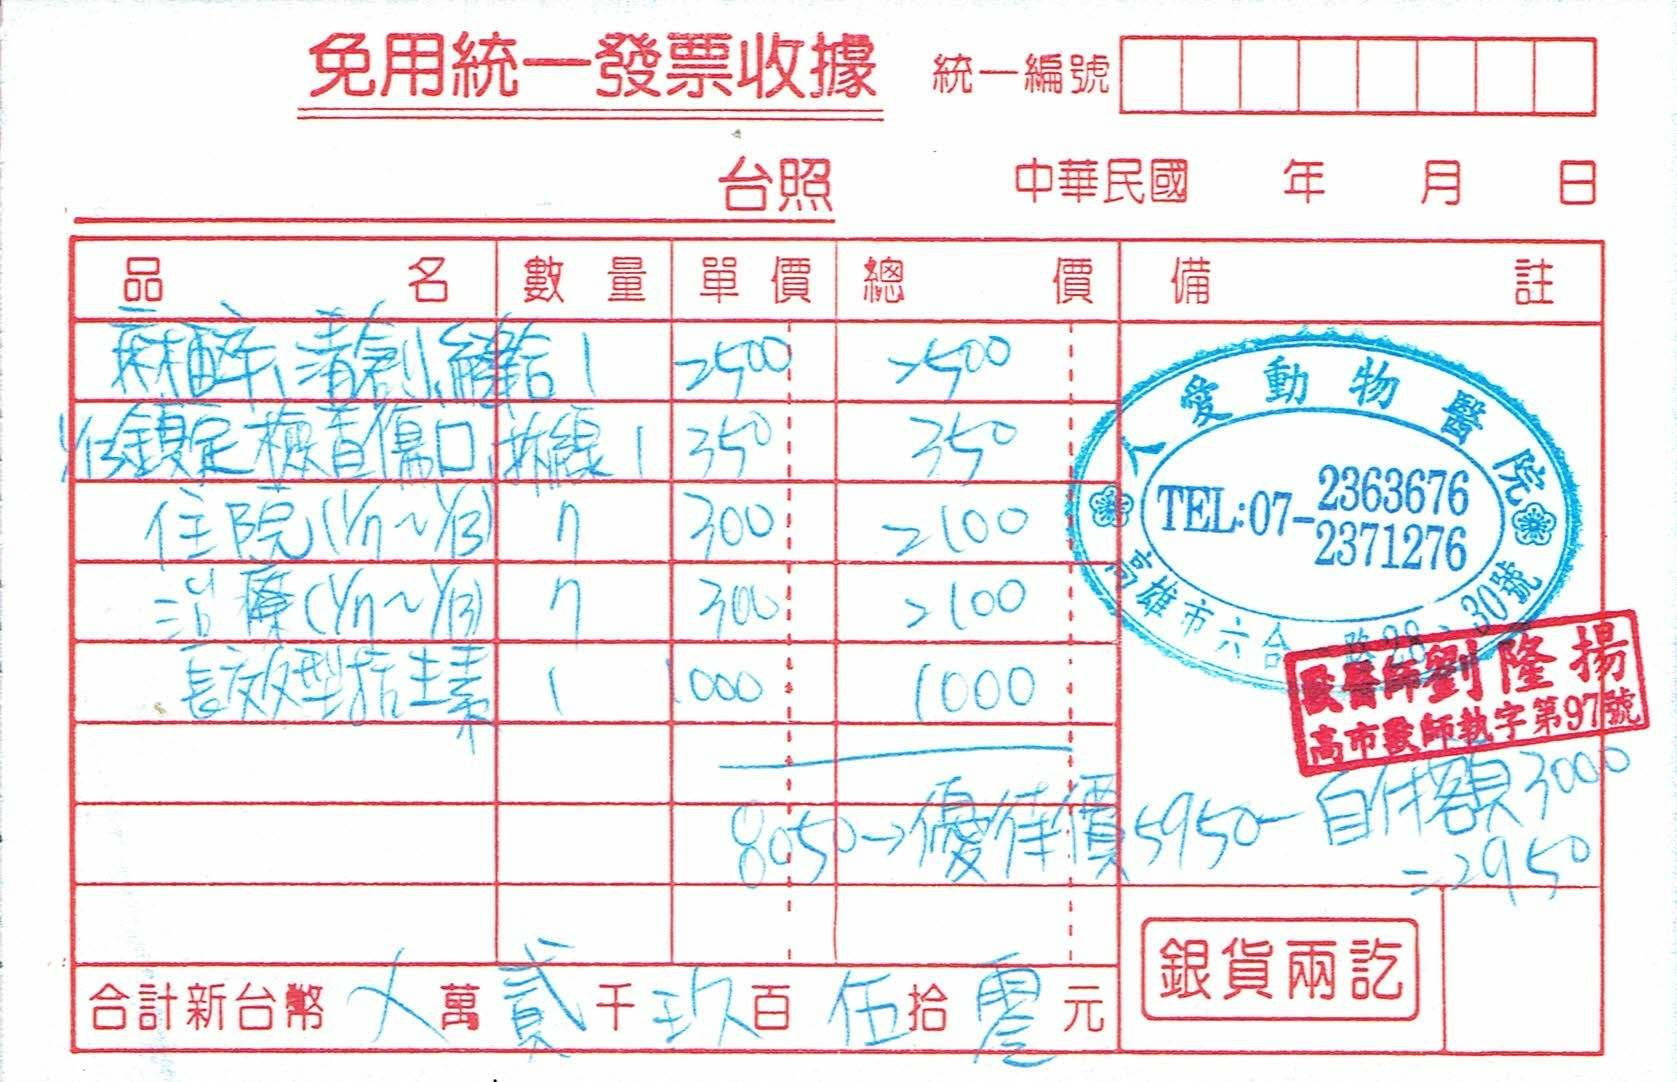 免用統一發票收據 統一編號
台照 中華民國 年 月 日
品名 數量 單價 總價 備註
麻醉、清創、縫合 1 2500 2500
1/13鎮定檢查傷口、拆線 1 350 350
住院(1/7~1/13) 7 300 2100
治療(1/7~1/13) 7 300 2100
長效型抗生素 1 1000 1000
人愛動物醫院
TEL:07-2363676
2371276
高雄市六合一路28、30號
獸醫師劉隆揚
高市獸師執字第97號
8050→優待價5950-自付額3000
=2950
合計新台幣 ㄨ 萬 貳 千 玖 百 伍 拾 零 元
銀貨兩訖